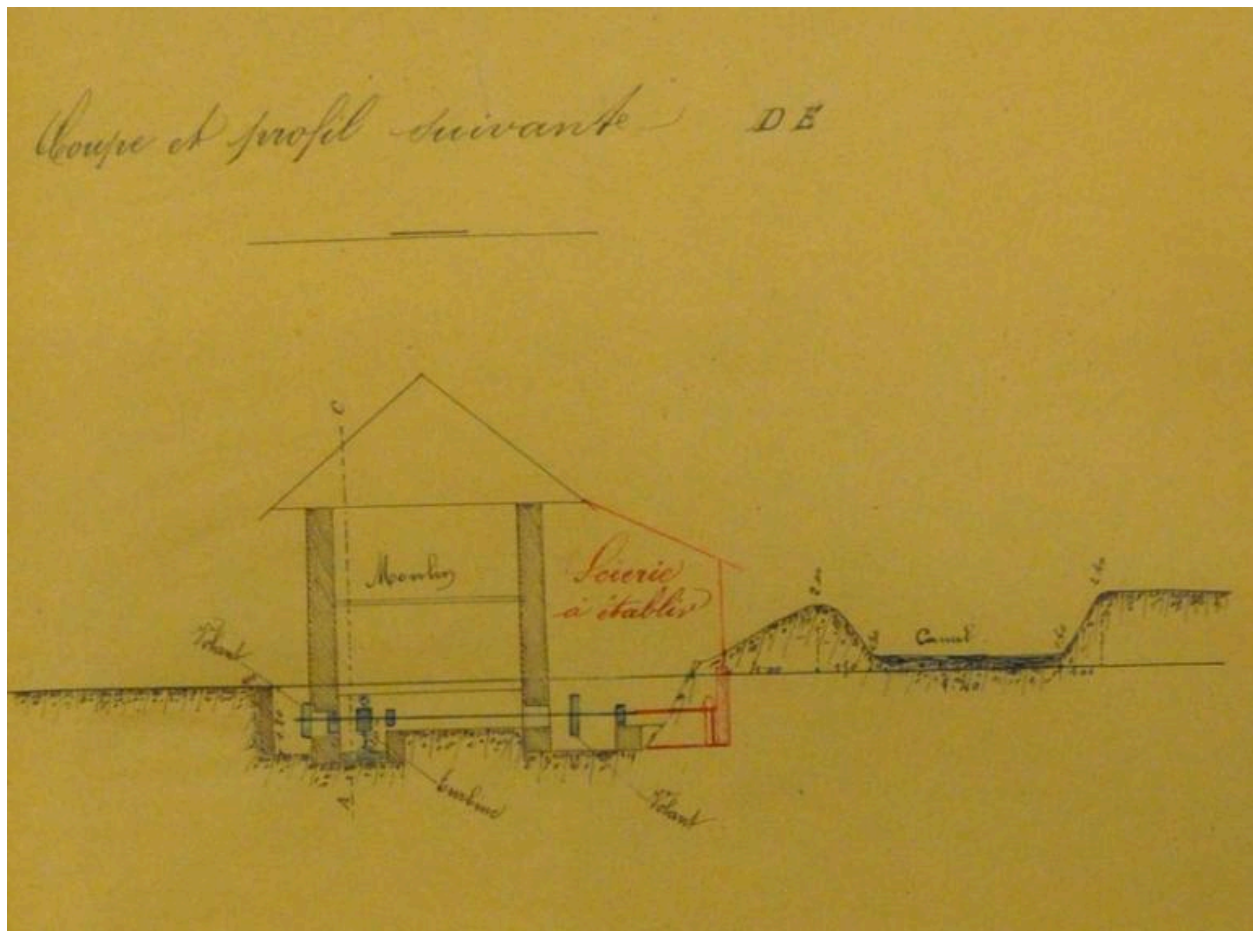 Coupe et profil suivante D E
C
Moulin
Scierie
à établir
2.00
2.60
Canal
Volant
Turbine
Volant
A